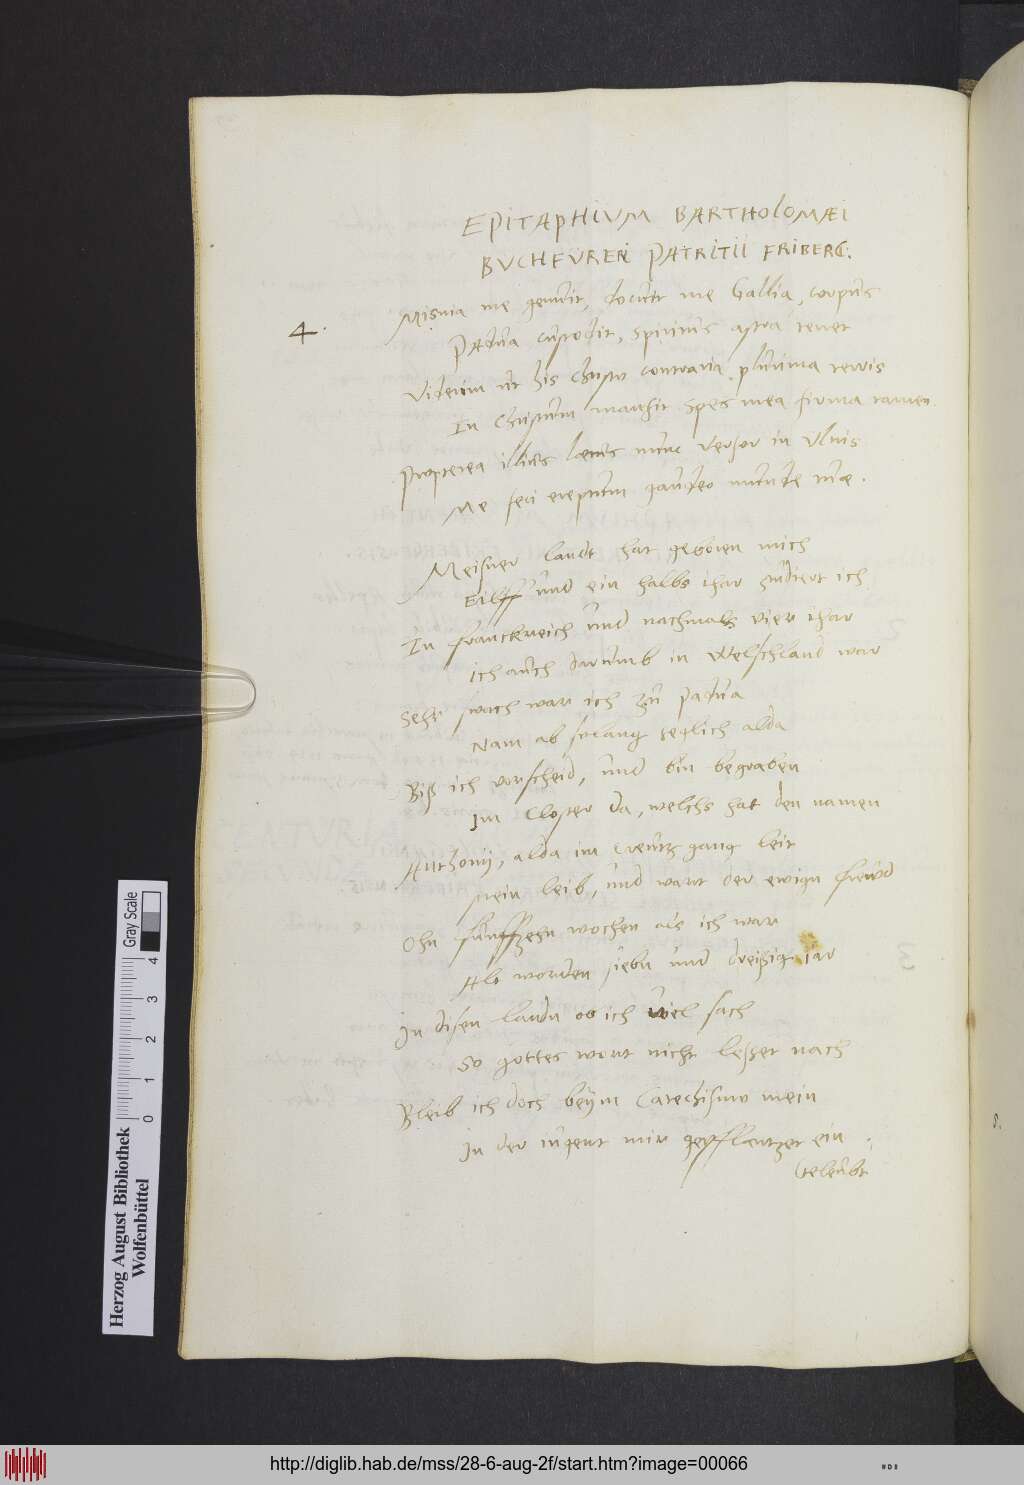 EPITAPHIVM BARTHOLOMÆI
BVCHFVRERI PATRITII FRIBERG:
4.
Misnia me genuit, docuit me Gallia, corpus
Padua custodit, spiritus astra tenet
Viderim ut his Christo contraria plurima terris
In Christum mansit spes mea firma tamen.
Propterea illius laetus nunc versor in ulnis
Me feci ereptum gaudeo
Meisner landt hat geboren mich
Eilff und ein halbs ihar studiert ich
In franckreich und nachmals vier ihar
Ich auch darumb in Welschland war
Sehr swach war ich zu Padua
Nam ab solang teglich alda
Biß ich vorscheid, und bin begraben
Im Closter da, welchs hat den namen
Anthonij, alda im Creutz gang leit
mein leib, und wart der ewign frewd
Ohn funffzehn wochen als ich war
Alt worden siebn und dreißig iar
In disen landn ob ich viel sach
So gottes wort nicht lesset nach
Bleib ich doch beym Catechismo mein
In der iugent mir gepflantzet ein.
Geleubt
8.
Herzog August Bibliothek
Wolfenbüttel
Gray Scale
0 1 2 3 4
http://diglib.hab.de/mss/28-6-aug-2f/start.htm?image=00066